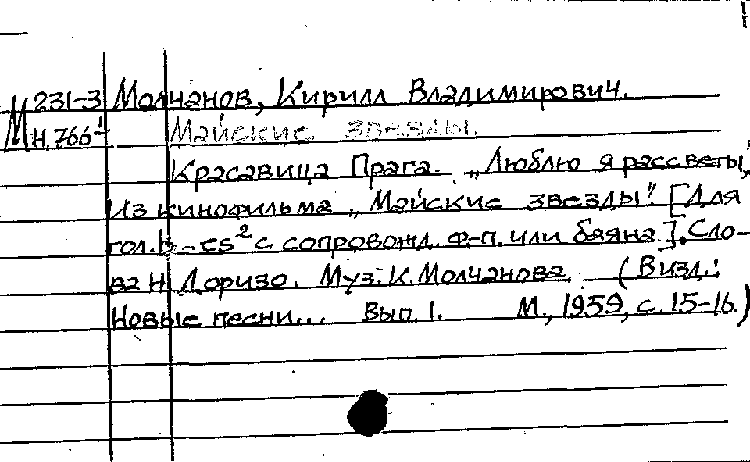 М 231-3 Молчанов, Кирилл Владимирович.
Н.766¹ Майские звезды.
Красавица Прага. „Люблю я рассветы,"
Из кинофильма „Майские звезды" [Для
гол. h-es² с сопровожд. ф-п. или баяна]. Сло-
ва Н. Доризо. Муз. К. Молчанова. (В изд.:
Новые песни... Вып. 1. М., 1959, с. 15-16.)